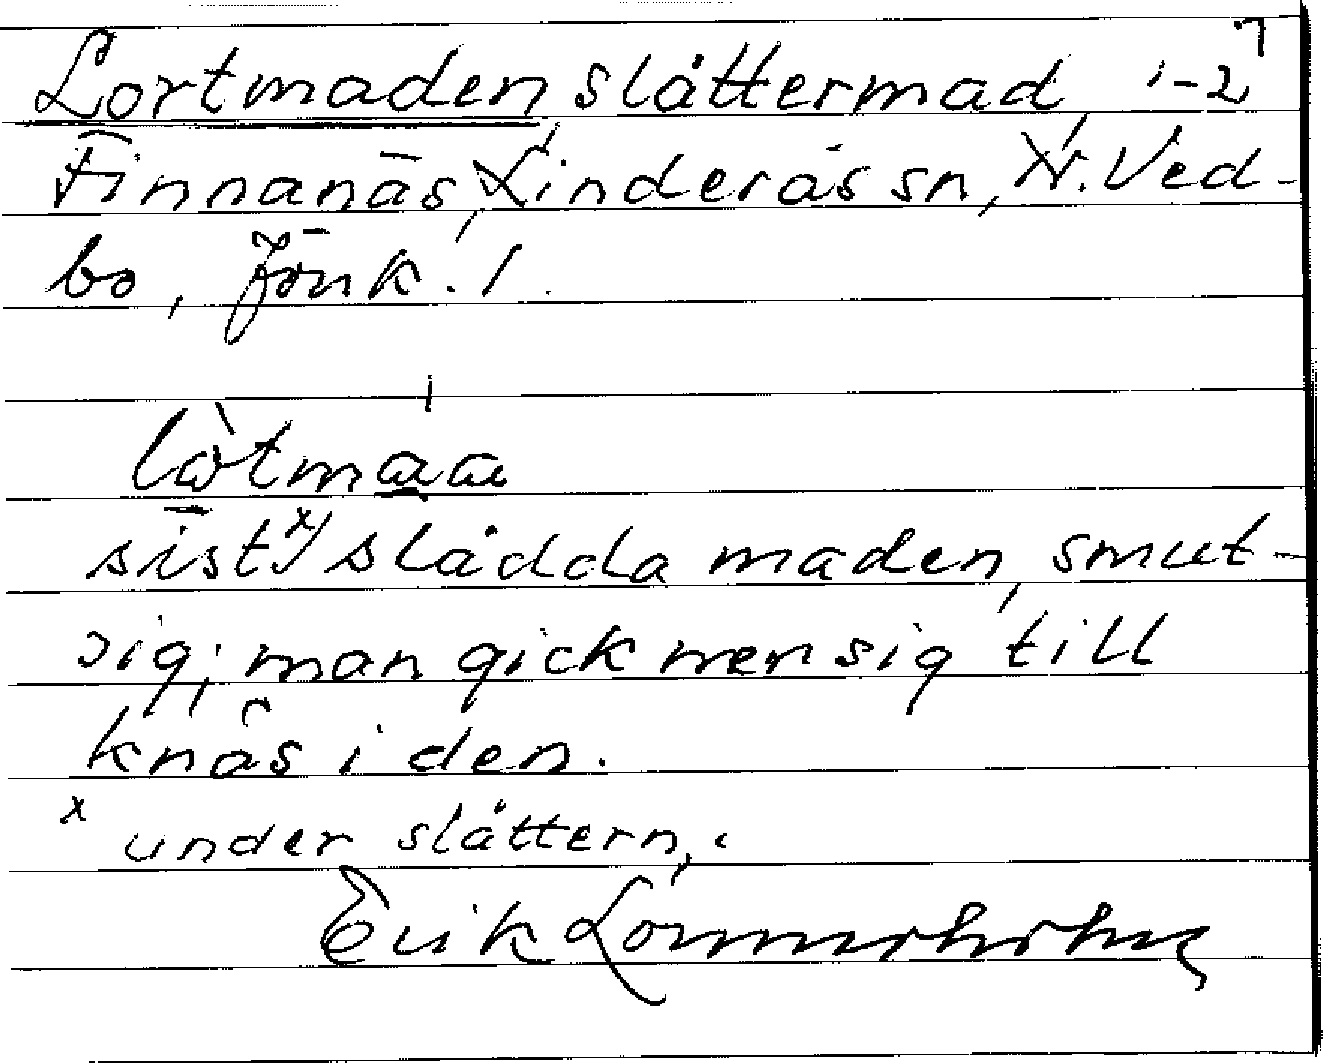 Lortmaden slåttermad 1-2 7
Finnanäs, Linderås sn, N. Ved-
bo, Jönk. l.
sist x) slådda maden, smut-
sig; man gick ner sig till
knäs i den.
x under slåttern.
Erik